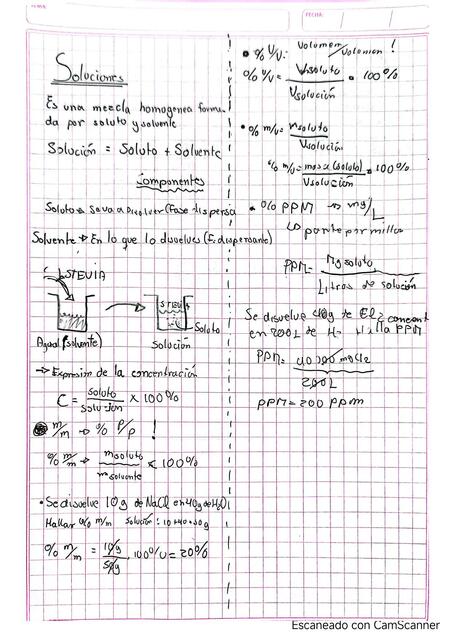 FECHA:
Soluciones
Es una mezcla homogenea forma
da por soluto y solvente
Solución = Soluto + Solvente
Componentes
Soluto → Se va a Disolver (Fase dispersa
Solvente → En lo que lo disuelves (F. dispersante)
STEVIA
STEVIA
Soluto
Agua (solvente)
Solución
→ Expresión de la concentración
C = soluto/solución x 100%
m/m → % P/P !
% m/m → msoluto/msolvente x 100%
• Se disuelve 10g de NaCl en 40g de H2O,
Hallar % m/m Solución: 10+40=50g
% m/m = 10g/50g . 100% = 20%
• % V/V: Volumen/Volumen !
% V/V = Vsoluto/Vsolución • 100%
• % m/v = msoluto/Vsolución
% m/v = masa (soluto)/Vsolución • 100%
• % PPM → mg/L
↳ parte por millon
PPM = Mg soluto/Litros de solución
Se disuelve 40g de
en 200L de PPM
PPM = /200L
PPM = 200 ppm
Escaneado con CamScanner